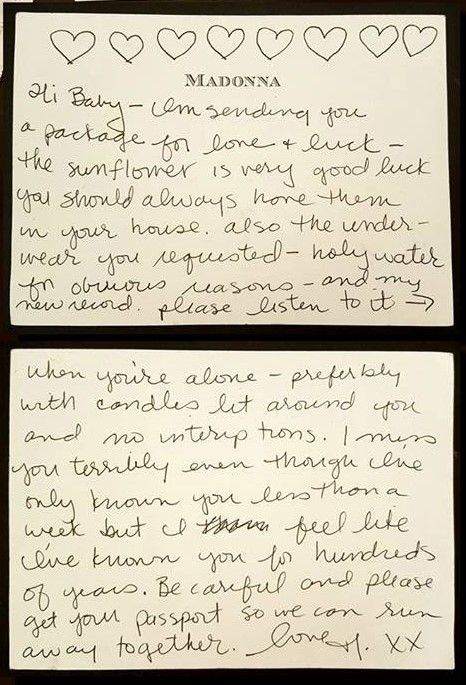 MADONNA
Hi Baby - I'm sending you
a package for love + luck -
the sunflower is very good luck
you should always have them
in your house. also the under-
wear you requested - holy water
for obvious reasons - and my
new record. please listen to it →
when you're alone - preferbly
with candles lit around you
and no interiptions. I miss
you terribly even though I've
only known you less than a
week but I feel like
I've known you for hundreds
of years. Be careful and please
get your passport so we can run
away together. love M. XX